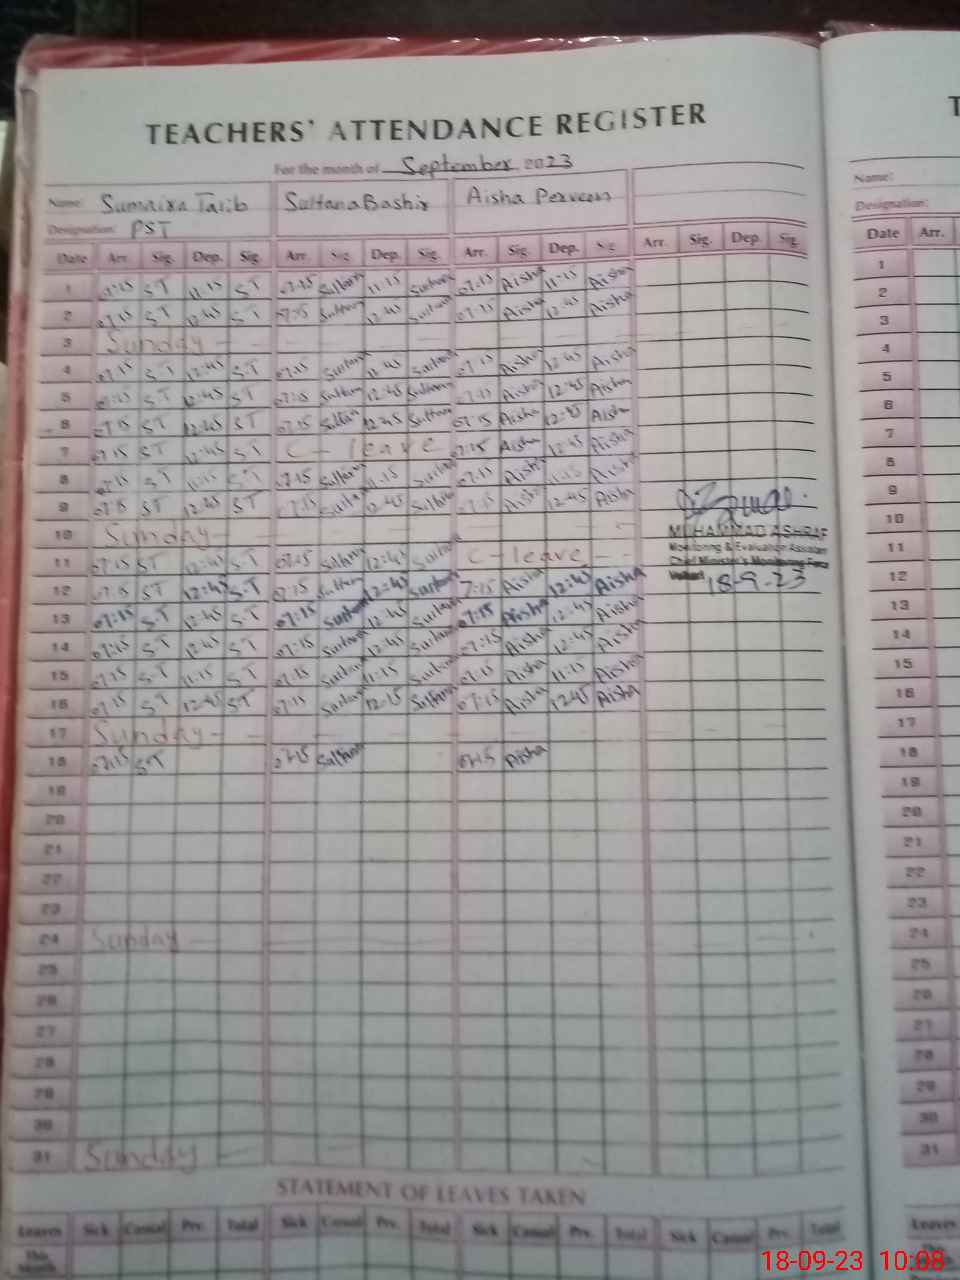 TEACHERS' ATTENDANCE REGISTER
For the month of September 2023
Name: Sumaira Talib Sultana Bashir Aisha Perveen
Designation: PST
Date Arr. Sig. Dep. Sig. Arr. Sig. Dep. Sig. Arr. Sig. Dep. Sig. Arr. Sig. Dep. Sig.
1 07:15 ST 11:15 ST 07:15 Sultana 11:15 Sultana 07:15 Aisha 11:15 Aisha
2 07:15 ST 12:45 ST 07:15 Sultana 12:45 Sultana 07:15 Aisha 12:45 Aisha
3 Sunday
4 07:15 ST 12:45 ST 07:15 Sultana 12:45 Sultana 07:15 Aisha 12:45 Aisha
5 07:15 ST 12:45 ST 07:15 Sultana 12:45 Sultana 07:15 Aisha 12:45 Aisha
6 07:15 ST 12:45 ST 07:15 Sultana 12:45 Sultana 07:15 Aisha 12:45 Aisha
7 07:15 ST 12:45 ST C-leave 07:15 Aisha 12:45 Aisha
8 07:15 ST 11:15 ST 07:15 Sultana 11:15 Sultana 07:15 Aisha 11:15 Aisha
9 07:15 ST 12:45 ST 07:15 Sultana 12:45 Sultana 07:15 Aisha 12:45 Aisha
10 Sunday
MUHAMMAD ASHRAF
Monitoring & Evaluation Assistant
Chief Minister's Monitoring Force
18-9-23
11 07:15 ST 12:45 S.T 07:15 Sultana 12:45 Sultana C-leave
12 07:15 ST 12:45 S.T 07:15 Sultana 12:45 Sultana 7:15 Aisha 12:45 Aisha
13 07:15 S.T 12:45 S.T 07:15 Sultana 12:45 Sultana 07:15 Aisha 12:45 Aisha
14 07:15 ST 12:45 ST 07:15 Sultana 12:45 Sultana 07:15 Aisha 12:45 Aisha
15 07:15 S.T 11:15 ST 07:15 Sultana 11:15 Sultana 07:15 Aisha 11:15 Aisha
16 07:15 ST 12:45 ST 07:15 Sultana 12:15 Sultana 07:15 Aisha 12:45 Aisha
17 Sunday
18 07:15 ST 07:15 Sultana 07:15 Aisha
19
20
21
22
23
24 Sunday
25
26
27
28
29
30
31 Sunday
STATEMENT OF LEAVES TAKEN
Leaves Sick Casual Prv. Total Sick Casual Prv. Total Sick Casual Prv. Total Sick Casual Prv. Total
This Month
T
Name:
Designation:
Date Arr.
1
2
3
4
5
6
7
8
9
10
11
12
13
14
15
16
17
18
19
20
21
22
23
24
25
26
27
28
29
30
31
Leaves
This
18-09-23 10:08